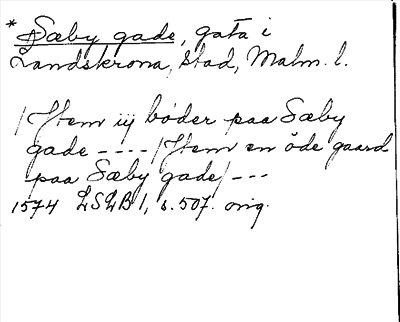 * Sæby gade, gata i
Landskrona, stad, Malm. l.
/Item iij bøder paa Sæby
gade ----/Item en öde gaard
paa Sæby gade/ ---
1574 LSLB 1, s. 507. orig.